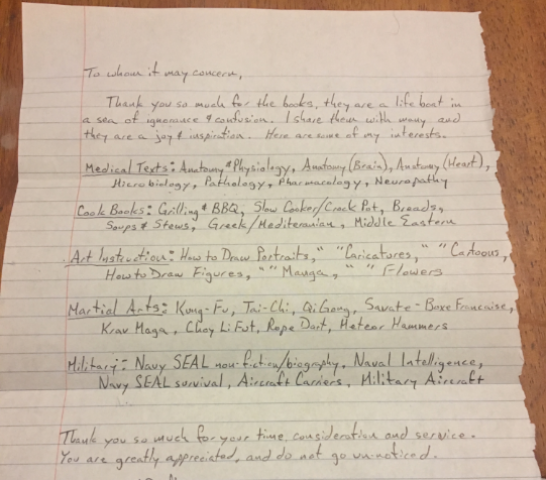 To whom it may concern,
Thank you so much for the books, they are a life boat in
a sea of ignorance & confusion. I share them with many and
they are a joy & inspiration. Here are some of my interests.
Medical Texts: Anatomy & Physiology, Anatomy (Brain), Anatomy (Heart),
Microbiology, Pathology, Pharmacology, Neuropathy
Cook Books: Grilling & BBQ, Slow Cooker/Crock Pot, Breads,
Soups & Stews, Greek/Mediteranian, Middle Eastern
Art Instruction: How to Draw Portraits, " " Caricatures, " " Cartoons,
How to Draw Figures, " " Manga, " " Flowers
Martial Arts: Kung-Fu, Tai-Chi, Qi Gong, Savate-Boxe Francaise,
Krav Maga, Choy Li Fut, Rope Dart, Meteor Hammers
Military: Navy SEAL non-fiction/biography, Naval Intelligence,
Navy SEAL survival, Aircraft Carriers, Military Aircraft
Thank you so much for your time consideration and service.
You are greatly appreciated, and do not go un-noticed.